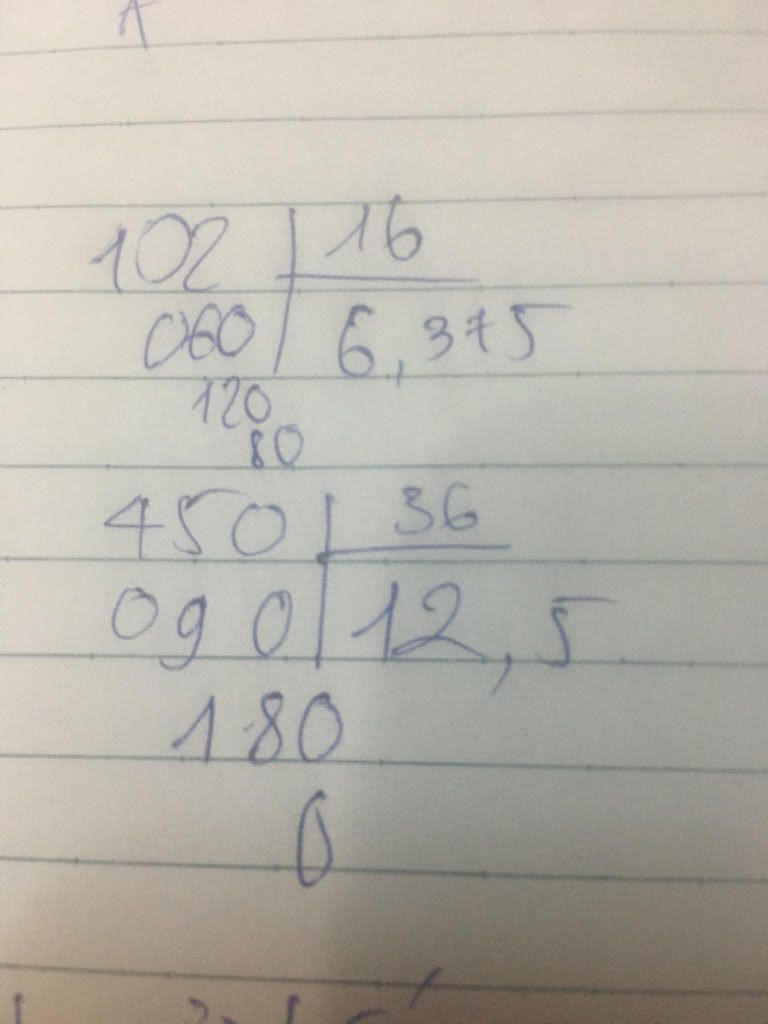 102 16
060 6,375
120
80
450 36
090 12,5
180
0